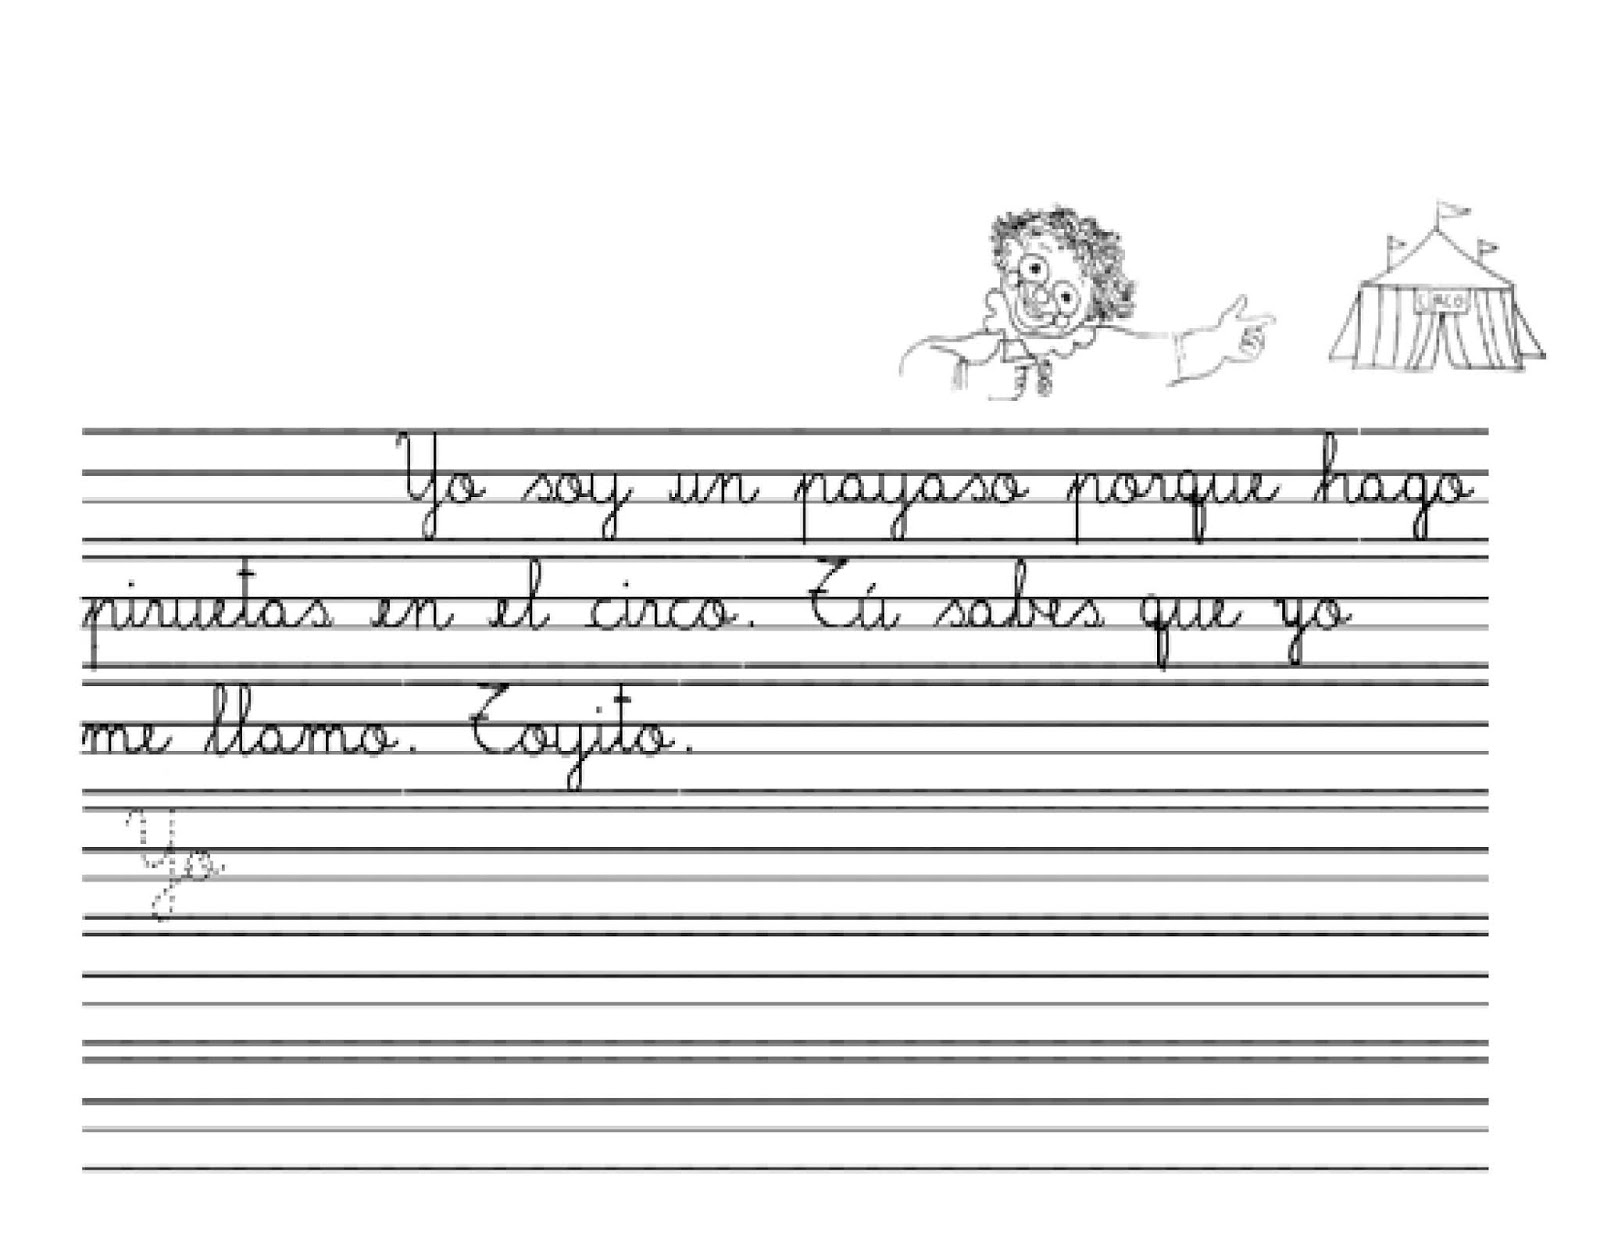 CIRCO
Yo soy un payaso porque hago
piruetas en el circo. Tú sabes que yo
me llamo. Toyito.
Yo